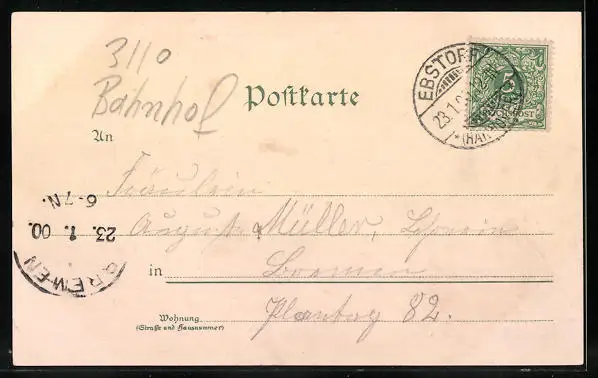 3110
Bahnhof
Postkarte
EBSTORF
23.1.
(HANNOVER)
5
REICHSPOST
An
Fräulein
August Müller,
in Bremen
Wohnung
(Straße und Hausnummer)
Plantag 82.
BREMEN
23. 1. 00.
6-7N.